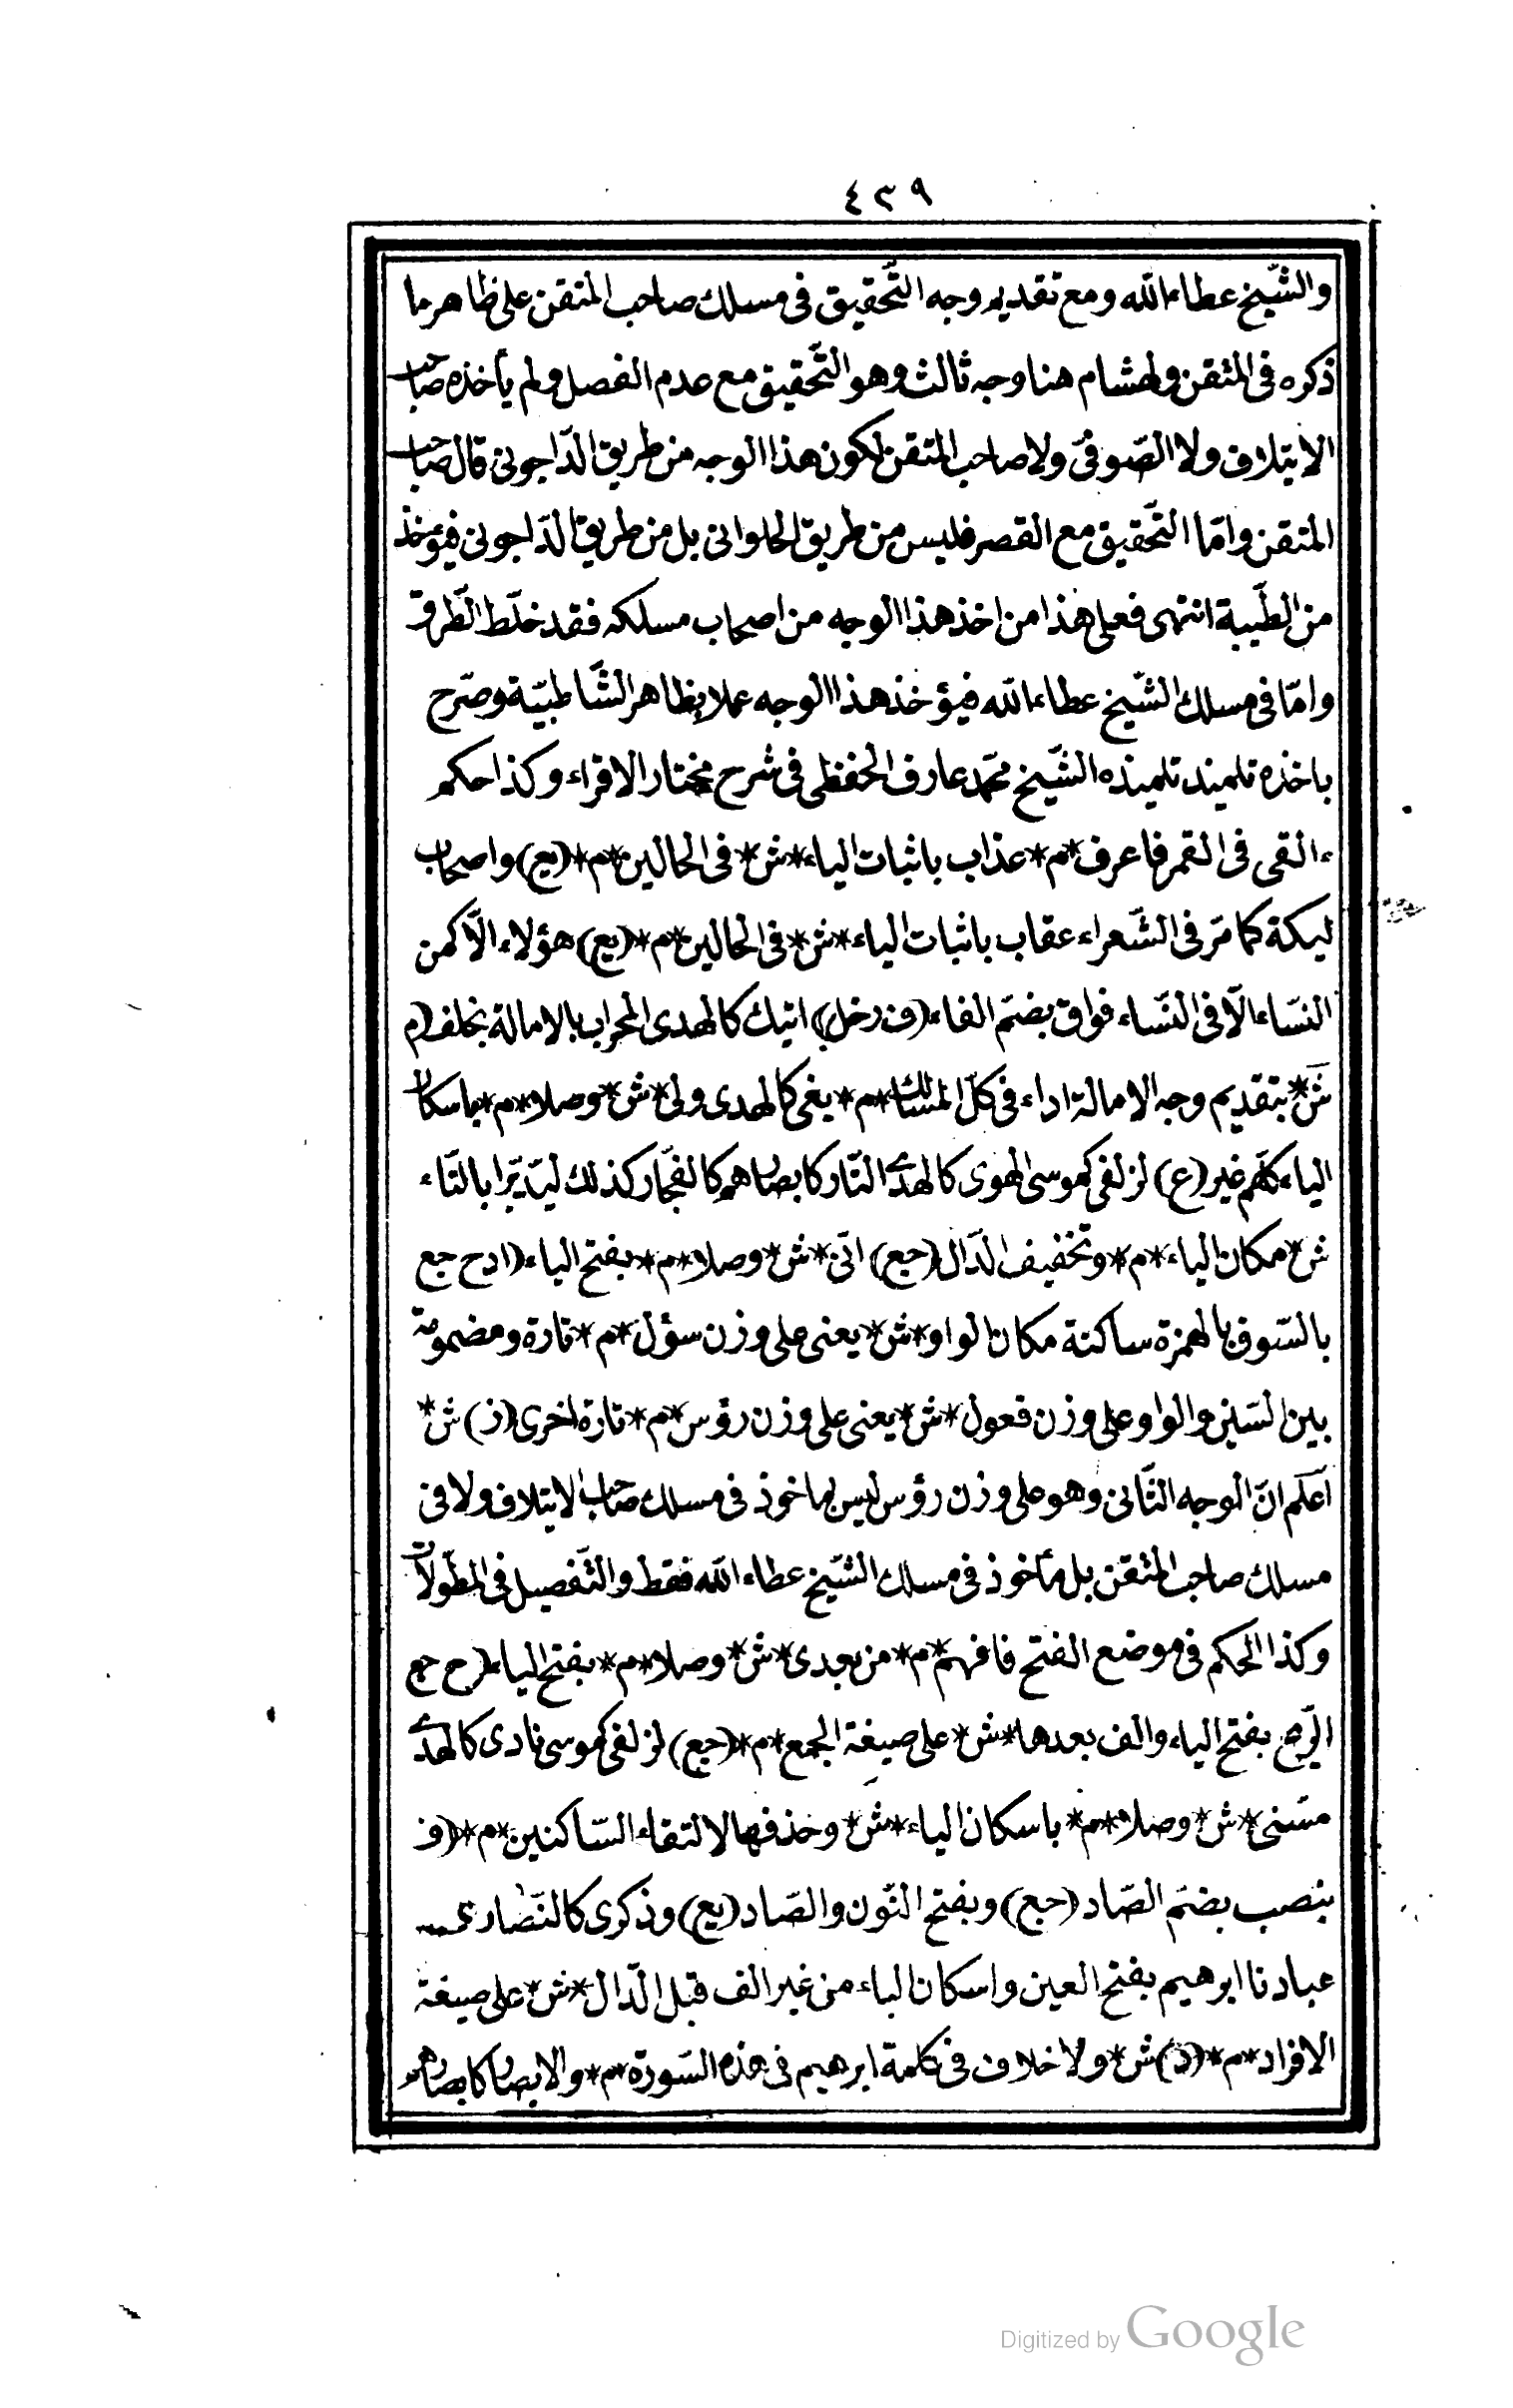 ٤٣٩
والشّيخ عطاءالله ومع تقديم وجه التّحقيق فى مسلك صاحب المتقن على ظاهر ما
ذكره فى المتقن ولهشام هنا وجه ثالث وهو التّحقيق مع عدم الفصل ولم يأخذه صاحب
الايتلاف ولا الصّوفىّ ولا صاحب المتقن لكون هذا الوجه من طريق الدّاجونى قال صاحب
المتقن وامّا التّحقيق مع القصر فليس من طريق الحلوانى بل من طريق الدّاجونى فيؤخذ
من الطّيبة انتهى فعلى هذا من اخذ هذا الوجه من اصحاب مسلكه فقد خلّط الطّرق
وامّا فى مسلك الشّيخ عطاءالله فيؤخذ هذا الوجه عملا بظاهر الشّاطبيّة وصرّح
باخذه تلميذ تلميذه الشّيخ محمّد عارف الحفظى فى شرح مختار الاقراء وكذا حكم
ءالقى فى القمر فاعرف *م* عذاب باثبات الياء *ش* فى الحالين *م* (يع) واصحاب
ليكة كما مرّ فى الشّعراء عقاب باثبات الياء *ش* فى الحالين *م* (يع) هؤلاء الّا كمن
النّساء الّا فى النّساء فواق بضمّ الفاء (ف رخل) اتيك كالهدى المحراب بالامالة بخلف (م
ش* بتقديم وجه الامالة اداء فى كلّ المسالك *م* بغى كالهدى ولى *ش* وصلا *م* باسكان
الياء كلّهم غير (ع) لزلفى كموسى الهوى كالهدى النّار كابصارهم كالفجّار كذلك ليدّبّرا بالتّاء
ش* مكان الياء *م* وتخفيف الدّال (جع) انّى *ش* وصلا *م* بفتح الياء (ادح جع
بالسّوق بالهمزة ساكنة مكان الواو *ش* يعنى على وزن سؤل *م* تارة ومضمومة
بين السّين والواو على وزن فعول *ش* يعنى على وزن رؤس *م* تارة اخرى (ز) ش*
اعلم انّ الوجه الثّانى وهو على وزن رؤس ليس بماخوذ فى مسلك صاحب الايتلاف ولا فى
مسلك صاحب المتقن بل مأخوذ فى مسلك الشّيخ عطاء الله فقط والتّفصيل فى المطّولات
وكذا الحكم فى موضع الفتح فافهم *م* من بعدى *ش* وصلا *م* بفتح الياء (ا ح جع
الرّيح بفتح الياء والف بعدها *ش* على صيغة الجمع *م* (جع) لزلفى كموسى نادى كالهدى
مسّنى *ش* وصلا *م* باسكان الياء *ش* وحذفها لالتقاء السّاكنين *م* (ف
بنصب بضمّ الصّاد (جع) وبفتح النّون والصّاد (يع) وذكرى كالنّصارى
عبادنا ابرهيم بفتح العين واسكان الباء من غير الف قبل الدّال *ش* على صيغة
الافراد *م* (د) ش* ولا خلاف فى كلمة ابرهيم فى هذه السّورة *م* والابصار كابصارهم
Digitized by Google